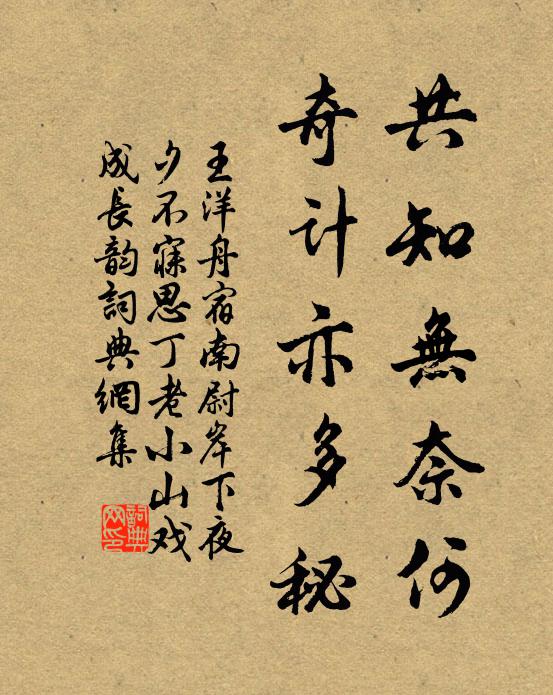 共知無奈何
奇计亦多秘
王洋舟宿南尉岸下夜
夕不寐思丁老小山戏
成長韵詞典網集
詞典网印